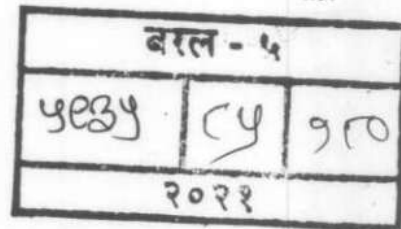 बरल - ५
५९३५ ८५ १८०
२०२१